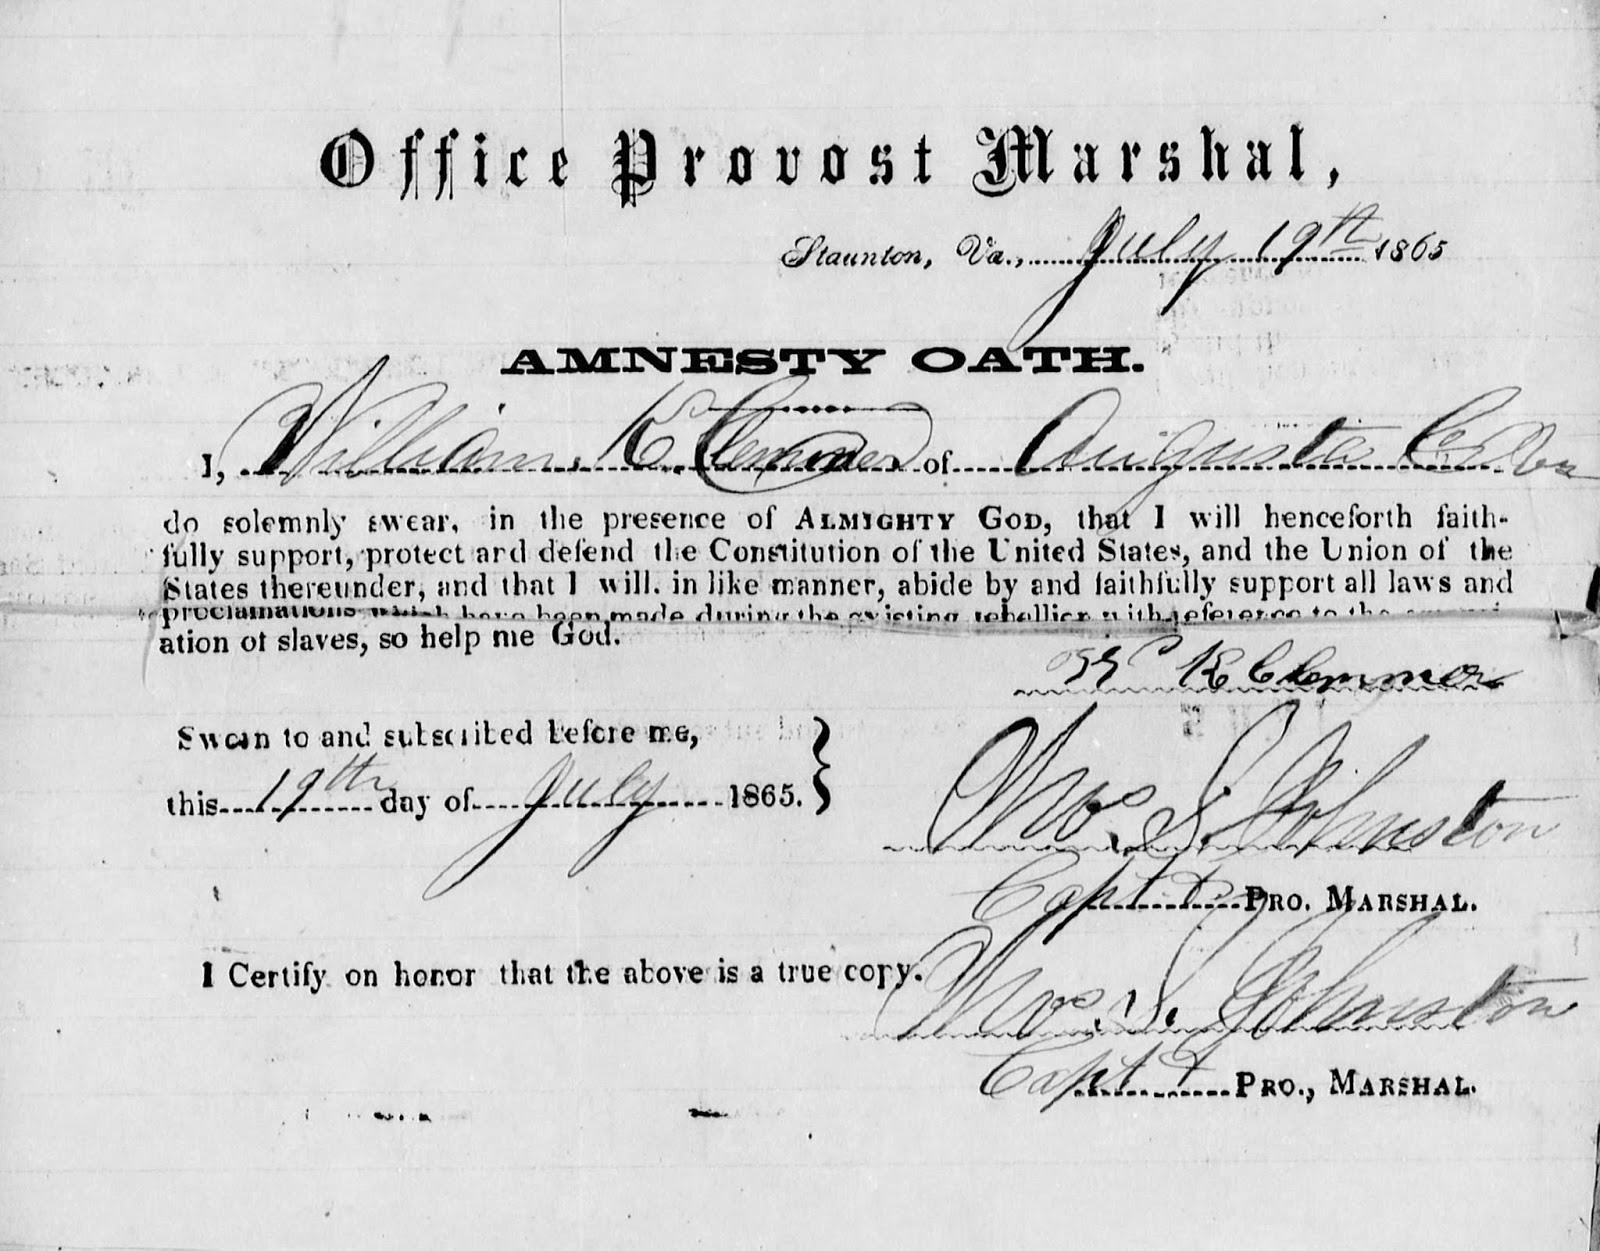 Office Provost Marshal,
Staunton, Va., July 19th 1865
AMNESTY OATH.
I, William K Clemmer of Augusta Co Va
do solemnly swear, in the presence of ALMIGHTY GOD, that I will henceforth faith-
fully support, protect and defend the Constitution of the United States, and the Union of the
States thereunder, and that I will, in like manner, abide by and faithfully support all laws and
proclamations which have been made during the existing rebellion with reference to the
ation of slaves, so help me God.
K Clemmer
Sworn to and subscribed before me,
this 19th day of July 1865.
Thos S. Johnston
Capt & PRO. MARSHAL.
I Certify on honor that the above is a true copy.
Thos S. Johnston
Capt & PRO., MARSHAL.